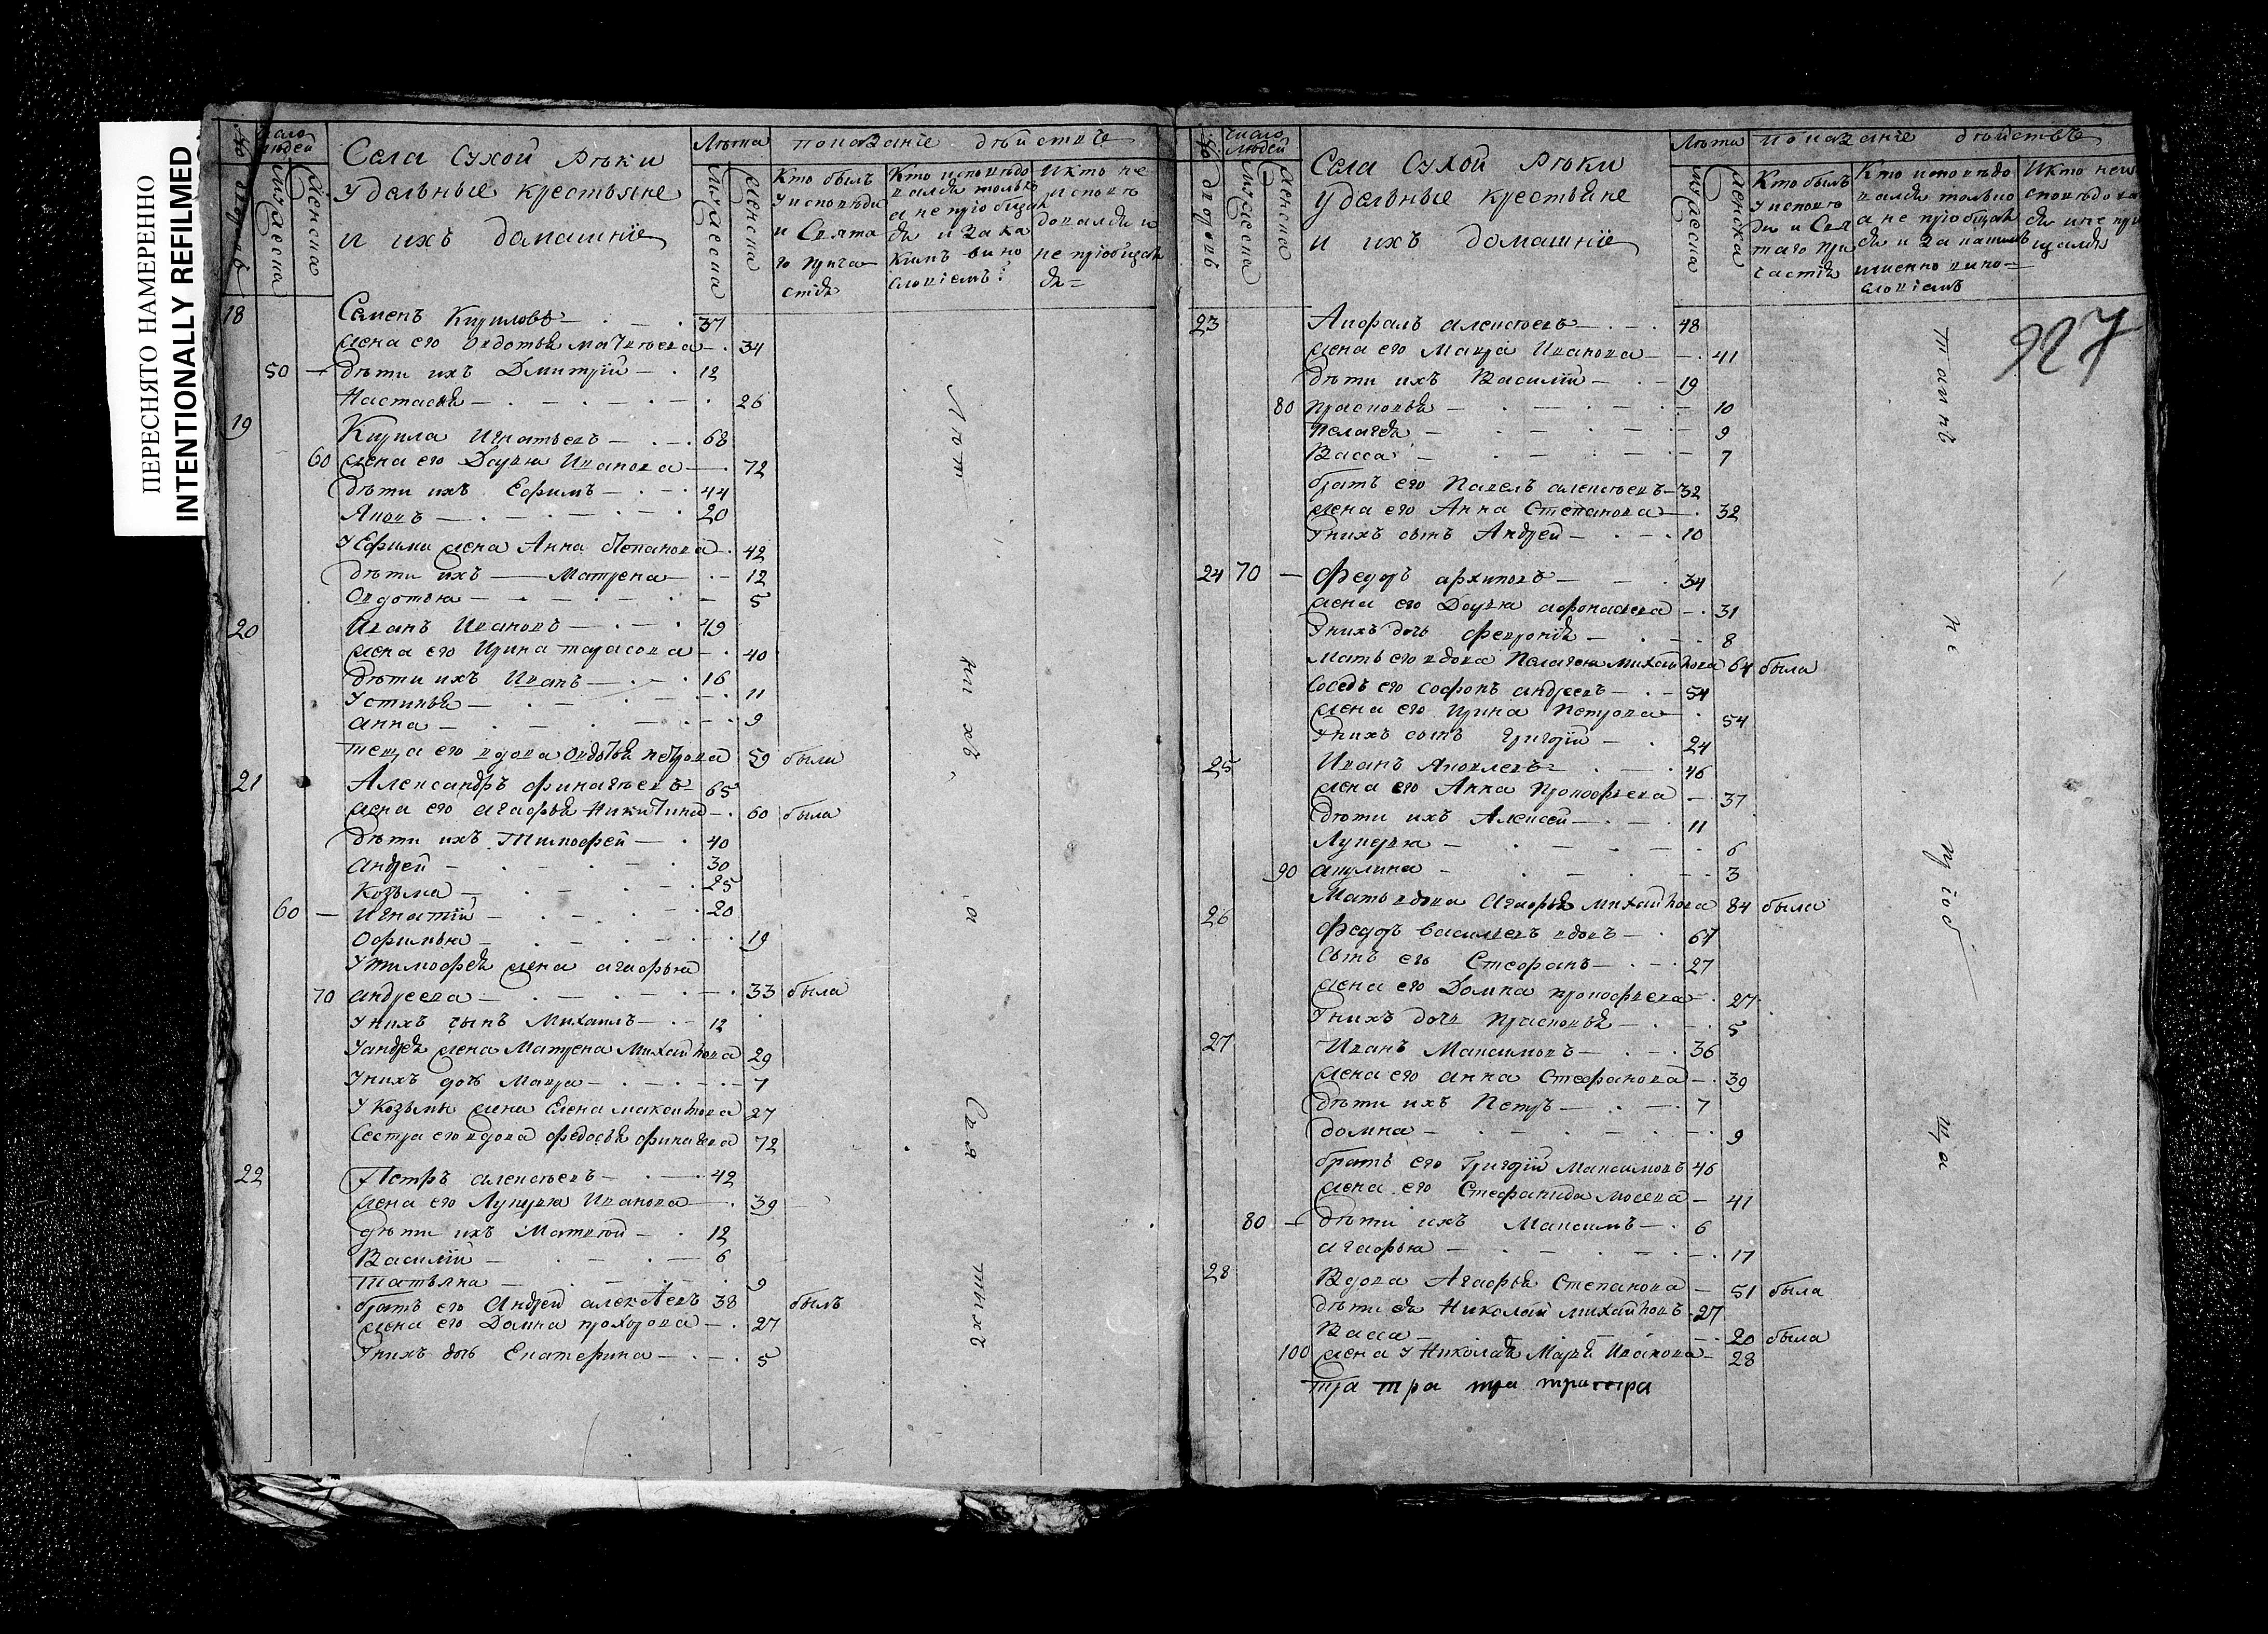 ПЕРЕСНЯТО НАМЕРЕННО
INTENTIONALLY REFILMED
Села Сухой Рѣки
удельные крестьяне
и ихъ домашніе
Лѣта
показаніе дѣйствъ
мужеска
женска
Кто былъ
у исповѣди
и Свята
го прича
стія
Кто исповѣдо
вался только
а не пріобщал
ся и за ка
кимъ вино
словіемъ
И кто не
исповѣ
довался и
не пріобщал
ся
18 Семенъ Кириловъ 37
жена его Овдотья Матвѣева 34
50 дѣти ихъ Дмитрій 12
Настасья 26
19 Кирила Игнатьевъ 68
60 жена его Дарья Иванова 72
дѣти ихъ Ефимъ 44
Яковъ 20
У Ефима жена Анна Степанова 42
дѣти ихъ Матрена 12
Овдотья 5
20 Иванъ Ивановъ 49
жена его Ирина тарасова 40
дѣти ихъ Иванъ 16
Устинья 11
анна 9
теща его вдова Овдотья петрова 59 были
21 Александръ финагѣевъ 65
жена его агафья Никитина 60 была
дѣти ихъ Тимофей 40
андрей 30
Козьма 25
60 игнатій 20
Офимья 19
У тимофея жена агафья
70 андреева 33 была
У нихъ сынъ Михаилъ 12
У андрея жена Матрена Михайлова 29
У нихъ дочь Мавра 7
У Козьмы жена Елена максимова 27
Сестра его вдова федосья финагѣева 72
22 Петръ алексѣевъ 42
жена его Лукерья Иванова 39
дѣти ихъ Матвѣй 12
Василій 6
татьяна 9
братъ его Андрей алексѣевъ 38 былъ
жена его Домна прохорова 27
У нихъ дочь Екатерина 5
Села Сухой Рѣки
удельные крестьяне
и ихъ домашніе
Лѣта
показаніе дѣйствъ
мужеска
женска
Кто былъ
у исповѣ
ди и Свя
таго при
частія
Кто исповѣдо
вался только
а не пріобщал
ся и за какимъ
именно вино
словіемъ
И кто не и
927
23 Анфалъ алексѣевъ 48
жена его Мавра Иванова 41
дѣти ихъ Василій 19
80 Прасковья 10
Пелагея 9
Васса 7
братъ его Павелъ алексѣевъ 32
жена его Анна Степанова 32
У нихъ сынъ Андрей 10
24 70 Федоръ архиповъ 34
жена его Дарья афонасьева 31
У нихъ дочь февронія 8
Мать его вдова Пелагея михайлова 64 была
Соседъ его софонъ андреевъ 54
жена его Ирина Петрова 54
У нихъ сынъ Григорій 24
25 Иванъ Яковлевъ 46
жена его Анна Прокофьева 37
дѣти ихъ Алексей 11
Лукерья 6
90 акулина 3
Мать вдова Агафья михайлова 84 была
26 Федоръ васильевъ вдовъ 67
Сынъ его Стефанъ 27
жена его Домна прокофьева 27
У нихъ дочь Прасковья 5
27 Иванъ Максимовъ 36
жена его анна Стефанова 39
дѣти ихъ Петръ 7
домна 9
братъ его Григорій Максимовъ 46
жена его Стефанида мосева 41
80 дѣти ихъ Максимъ 6
агафья 17
28 Вдова Агафья Степанова 51 была
дѣти ея Николай михайловъ 27
Васса 20 была
100 жена у Николая Марья Иванова 28
тра тра тра тратра